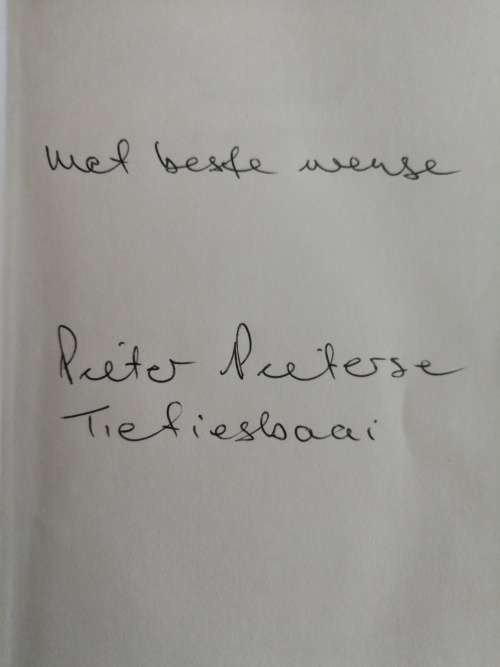 met beste wense
Pieter Pieterse
Tietiesbaai